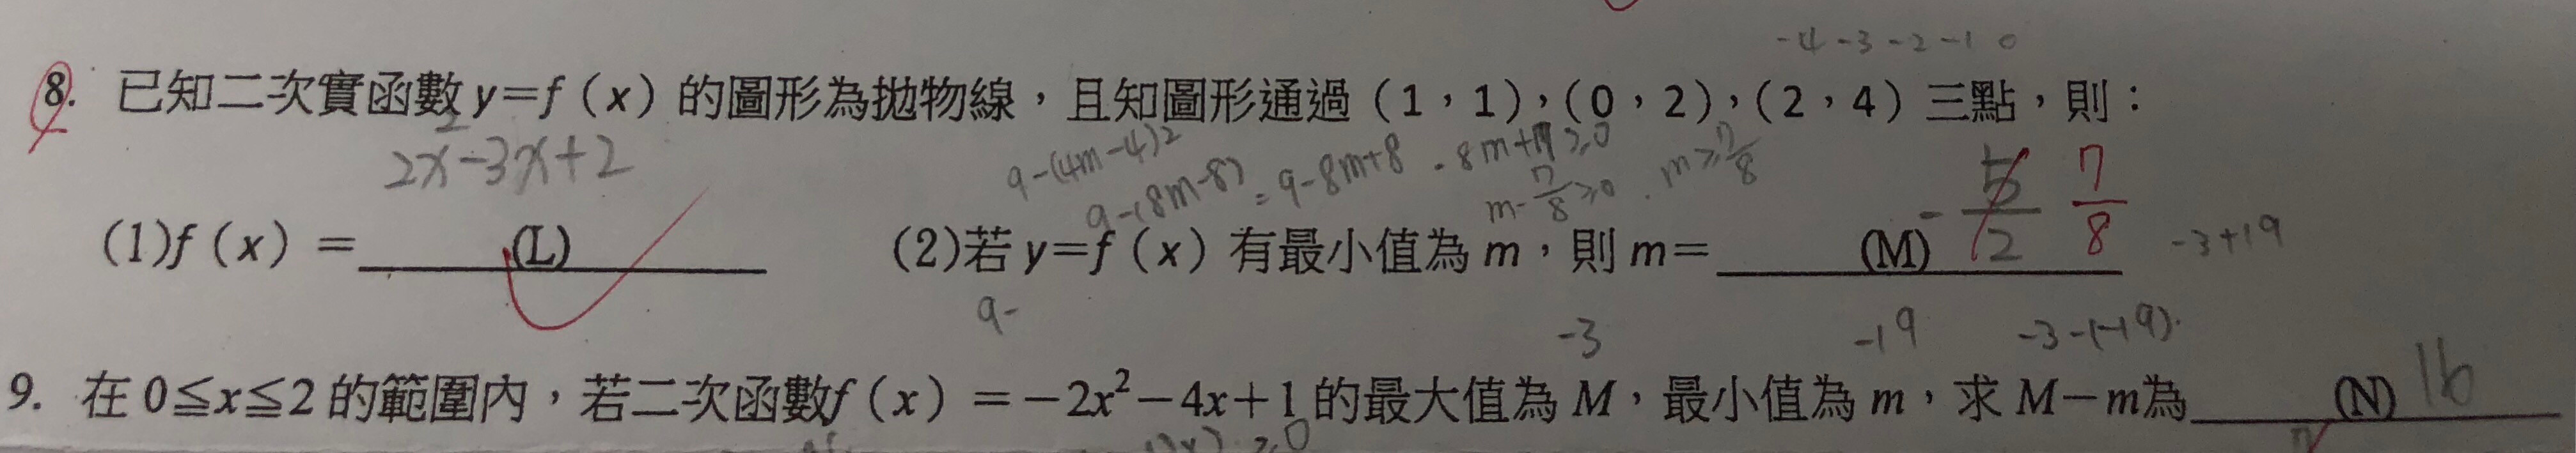 -4 -3 -2 -1 0
8. 已知二次實函數 y=f（x）的圖形為拋物線，且知圖形通過（1，1），（0，2），（2，4）三點，則：
2x²-3x+2
9-(4m-4)2
9-(8m-8) = 9-8m+8
-8m+17≥0
m-7/8≥0
m≥7/8
(1)f（x）= (L) (2)若 y=f（x）有最小值為 m，則 m= (M) -5/2 7/8
-3+19
9-
-3 -19 -3-(-19)
9. 在 0≦x≦2 的範圍內，若二次函數f（x）=-2x²-4x+1 的最大值為 M，最小值為 m，求 M-m為 (N) 16